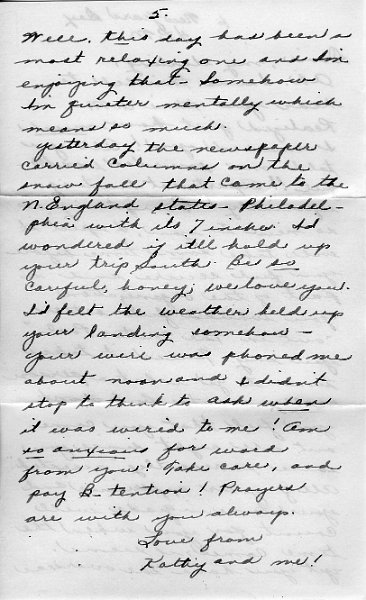 5.
Well, this day has been a
most relaxing one and I'm
enjoying that - Somehow
I'm quieter mentally which
means so much.
Yesterday the newspaper
carried columns on the
snow fall that came to the
N. England states - Philadel-
phia with its 7 inches. I'd
wondered if it'll hold up
your trip South. Be so
careful, honey, we love you.
I'd felt the weather held up
your landing somehow -
your wire was phoned me
about noon and I didn't
stop to think to ask when
it was wired to me! Am
so anxious for word
from you! Take care, and
pay B-tention! Prayers
are with you always.
Love from
Kathy and me!